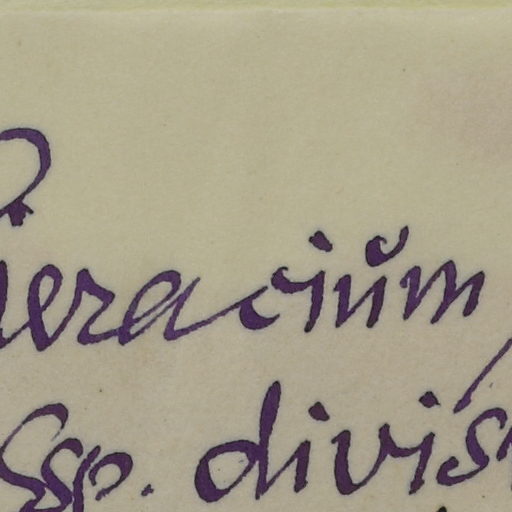 Hieraciŭm
Ssp. divis